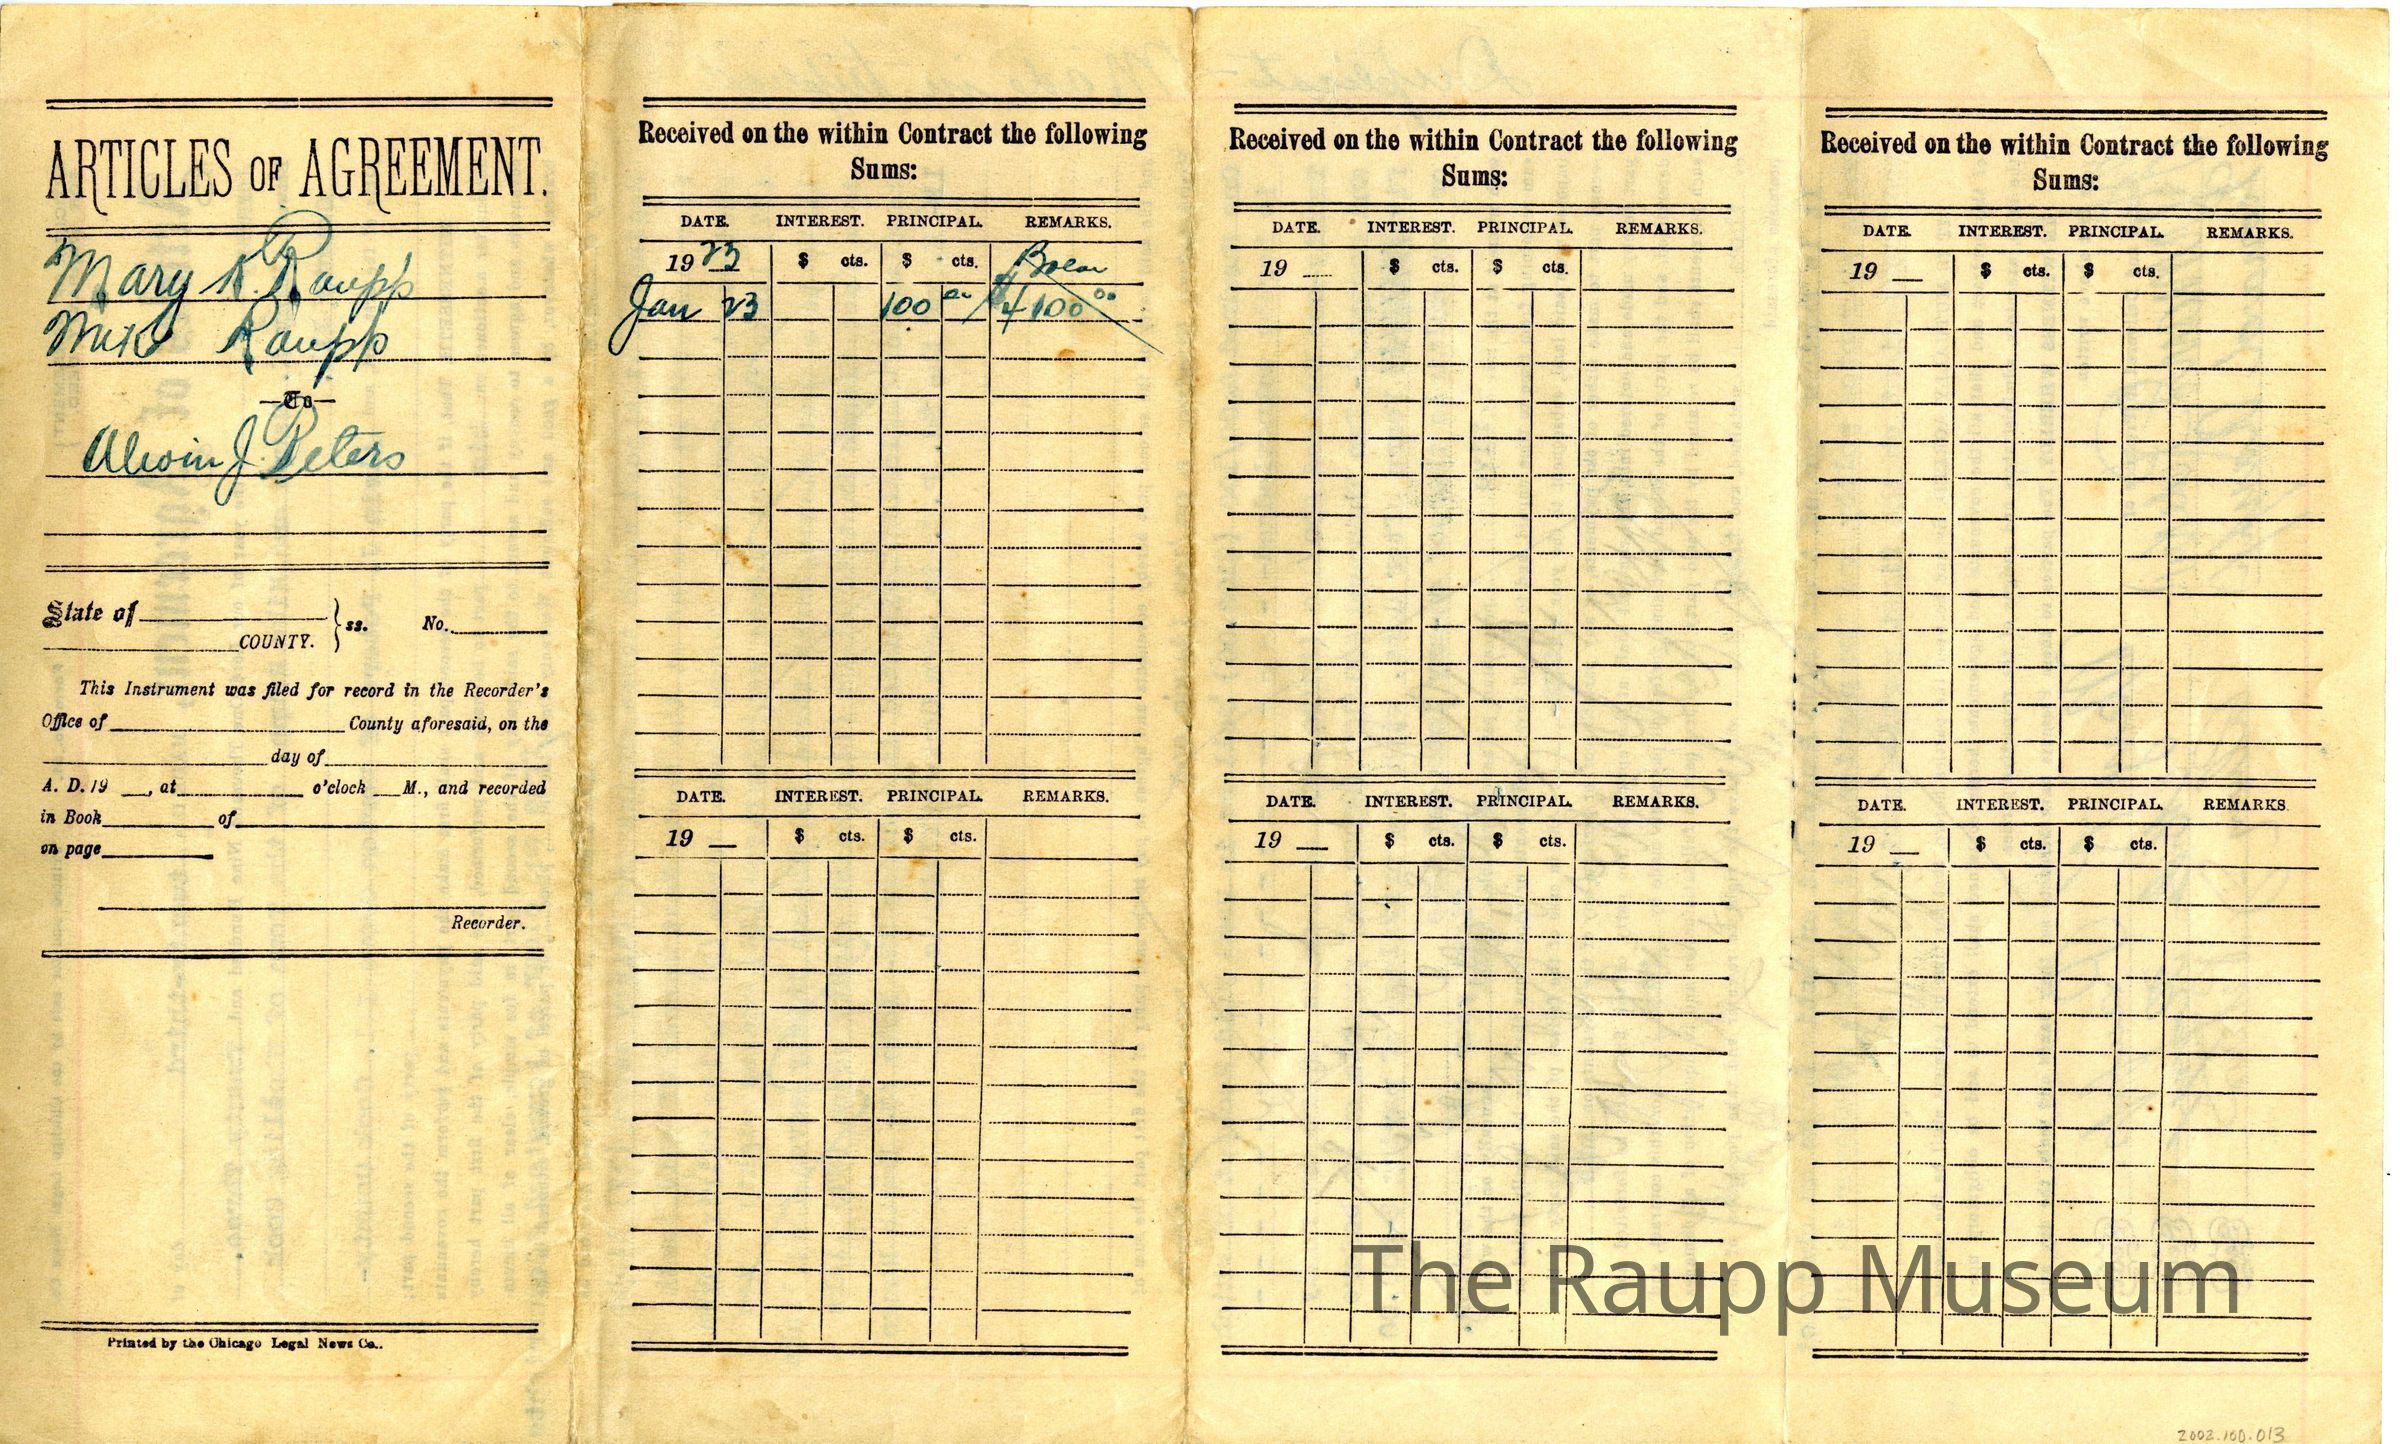 ARTICLES OF AGREEMENT.
Mary K. Raupp
Mike Raupp
—To—
Alwin J Peters
State of
COUNTY. } ss. No.
This Instrument was filed for record in the Recorder's
Office of County aforesaid, on the
day of
A. D. 19 , at o'clock M., and recorded
in Book of
on page
Recorder.
Printed by the Chicago Legal News Co..
Received on the within Contract the following
Sums:
DATE. INTEREST. PRINCIPAL. REMARKS.
1923 $ cts. $ cts.
Jan 23 100 00 $4100 00
DATE. INTEREST. PRINCIPAL. REMARKS.
19 $ cts. $ cts.
Received on the within Contract the following
Sums:
DATE. INTEREST. PRINCIPAL. REMARKS.
19 $ cts. $ cts.
DATE. INTEREST. PRINCIPAL. REMARKS.
19 $ cts. $ cts.
Received on the within Contract the following
Sums:
DATE. INTEREST. PRINCIPAL. REMARKS.
19 $ cts. $ cts.
DATE. INTEREST. PRINCIPAL. REMARKS.
19 $ cts. $ cts.
The Raupp Museum
2002.100.013